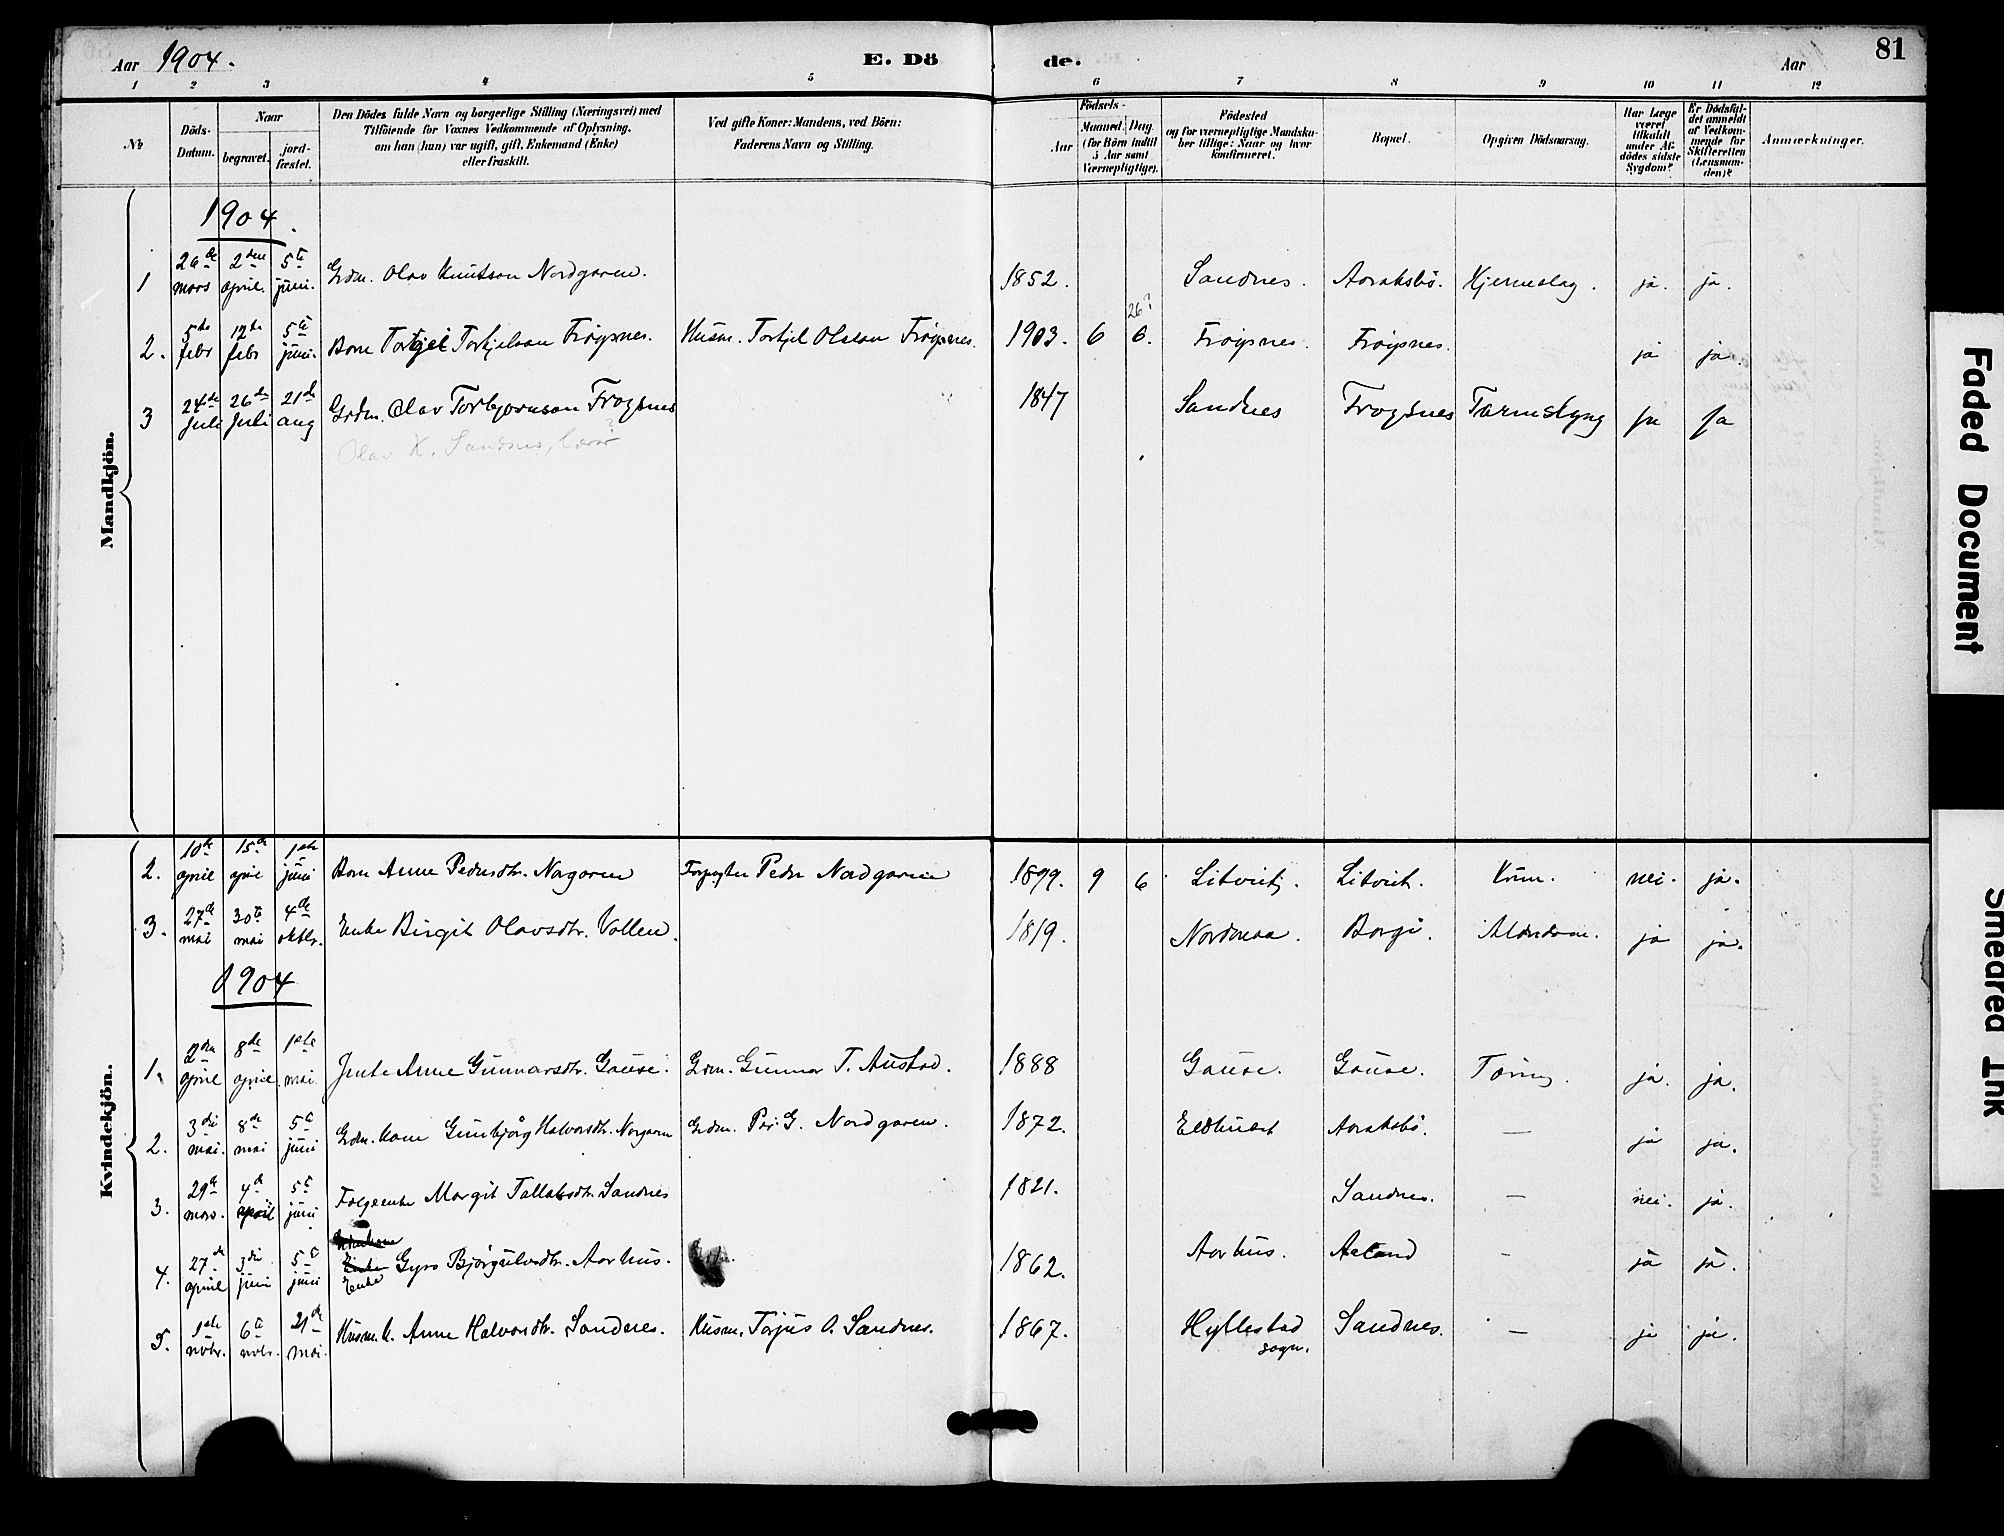 Aar 1904.
E. Dö
de.
Aar
81
1 2 3 4 5 6 7 8 9 10 11 12
No
Döds-Datum.
Naar
begravet.
jord-fæstet.
Den Dödes fulde Navn og borgerlige Stilling (Næringsvei) med
Tilföiende for Voxnes Vedkommende af Oplysning,
om han (hun) var ugift, gift, Enkemand (Enke)
eller fraskilt.
Ved gifte Koner: Mandens, ved Börn:
Faderens Navn og Stilling.
Födsels-
Aar
Maaned. Dag
(for Börn indtil
5 Aar samt
Værnepligtige).
Födested
og for værnepligtige Mandskaber tillige: Naar og hvor konfirmeret.
Bopæl.
Opgiven Dödsaarsag.
Har Læge været tilkaldt under Afdödes sidste Sygdom?
Er Dödsfaldet anmeldt af Vedkommende for Skifteretten (Lensmanden)?
Anmærkninger.
Mandkjön.
1904.
1 26de mars 2den april. 5te juni. Grdm. Olav Knutson Nordgaren. 1852. Sandnes. Aaraksbö. Hjerneslag. ja. ja.
2. 5te febr 12te febr 5te juni. Barn Torkjel Torkjelson Fröysnes. Husm. Torkjel Olson Fröysnes. 1903. 6 6. 26? Fröysnes. Fröysnes. ja ja.
3 24de Juli 26de Juli 21de aug Grdm. Olav Torbjörnson Fröysnes 1847 Sandnes Fröysnes Tarmslyng ja ja
Olav K. Sandnes, lærar?
Kvindekjön.
2. 10de april 15de april 1ste juni Barn Anne Pedersdtr. Nogaren Peder Nordgaren 1899. 9 6 Litveit. Litveit. nei. ja.
3. 27de mai 30te mai 4de oktbr. Enke Birgit Olavsdtr. Vollen. 1819. Nordmaa. Borgi. Alderdom. ja ja.
1904
1. 2den april 8de april. 1ste mai. Jente Anne Gunnarsdtr. Gause. Grdm. Gunnar T. Austad. 1888 Gause. Gause. Tæring. ja. ja.
2. 3die mai. 8de mai 5te juni Grdm. kone Gunbjörg Halvorsdtr. Norgaren Grdm. Per G. Nordgaren. 1872. Eldhuset Aaraksbö. — ja ja.
3. 29de mars. 4de april 5te juni Folgeenke Margit Tallaksdtr. Sandnes 1821. Sandnes. — nei. ja.
4. 27de april 3die juni 5te juni Enke Gyro Björgulvsdtr. Aarhus. 1862. Aarhus. Aaland - ja ja.
5. 1ste novbr. 6te novbr. 21de mai. Husm. k. Anne Halvorsdtr. Sandnes. Husm. Tarjus O. Sandnes. 1867. Hyllestad sogn. Sandnes. — ja ja.
Faded Document
Smeared Ink